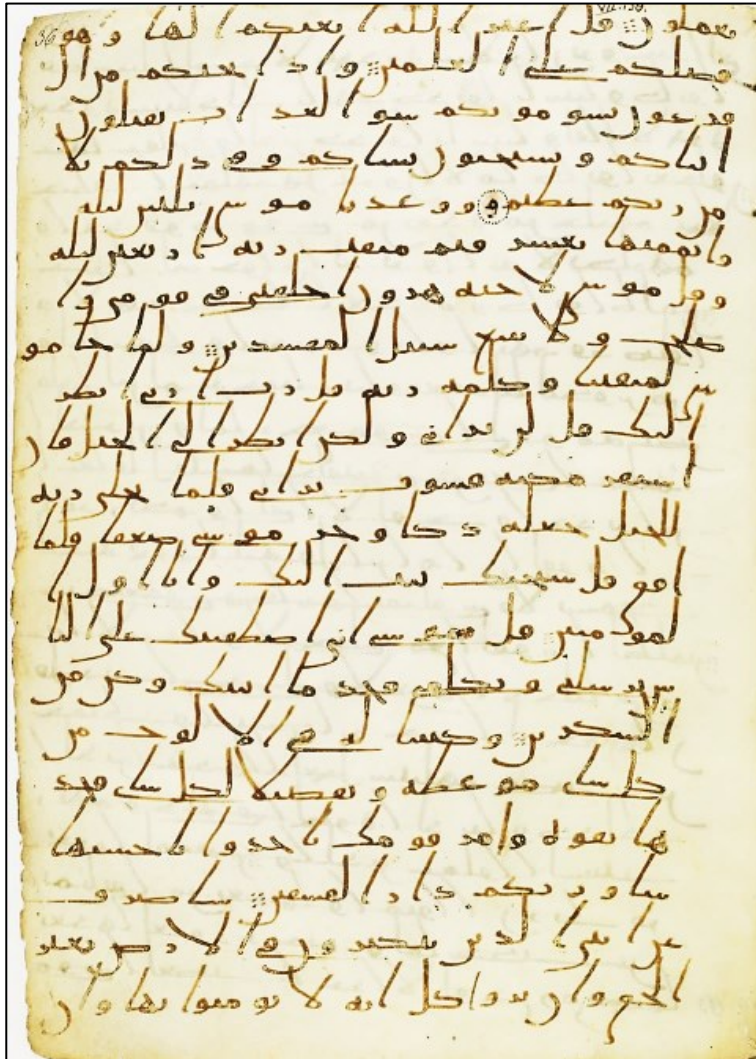 36
يعملون قل اغير الله ابغيكم الها وهو
فضلكم على العلمين واذ انجينكم من ال
فرعون يسومونكم سو العذاب يقتلون
ابناكم ويستحيون نساكم وفي ذلكم بلا
من ربكم عظيم ووعدنا موسى ثلثين ليله
واتممنها بعشر فتم ميقت ربه اربعين ليله
وقل موسى لاخيه هرون اخلفني في قومي وا
صلح ولا تتبع سبيل المفسدين ولما جا مو
سى لميقتنا وكلمه ربه قل رب ارني انظر
اليك قل لن ترىني ولكن انظر الى الجبل فان
استقر مكنه فسوف ترىني فلما تجلى ربه
للجبل جعله دكا وخر موسى صعقا فلما
افق قل سبحنك تبت اليك وانا اول ا
لمومنين قل يموسى اني اصطفيتك على النا
س برسلتي وبكلمي فخذ ما اتيتك وكن من
الشكرين وكتبنا له في الالوح من
كل شاي موعظه وتفصيلا لكل شاي فخذ
ها بقوه وامر قومك ياخذوا باحسنها
ساوريكم دار الفسقين ساصرف
عن ايتي الذين يتكبرون في الارض بغير
الحق وان يروا كل ايه لا يومنوا بها وان